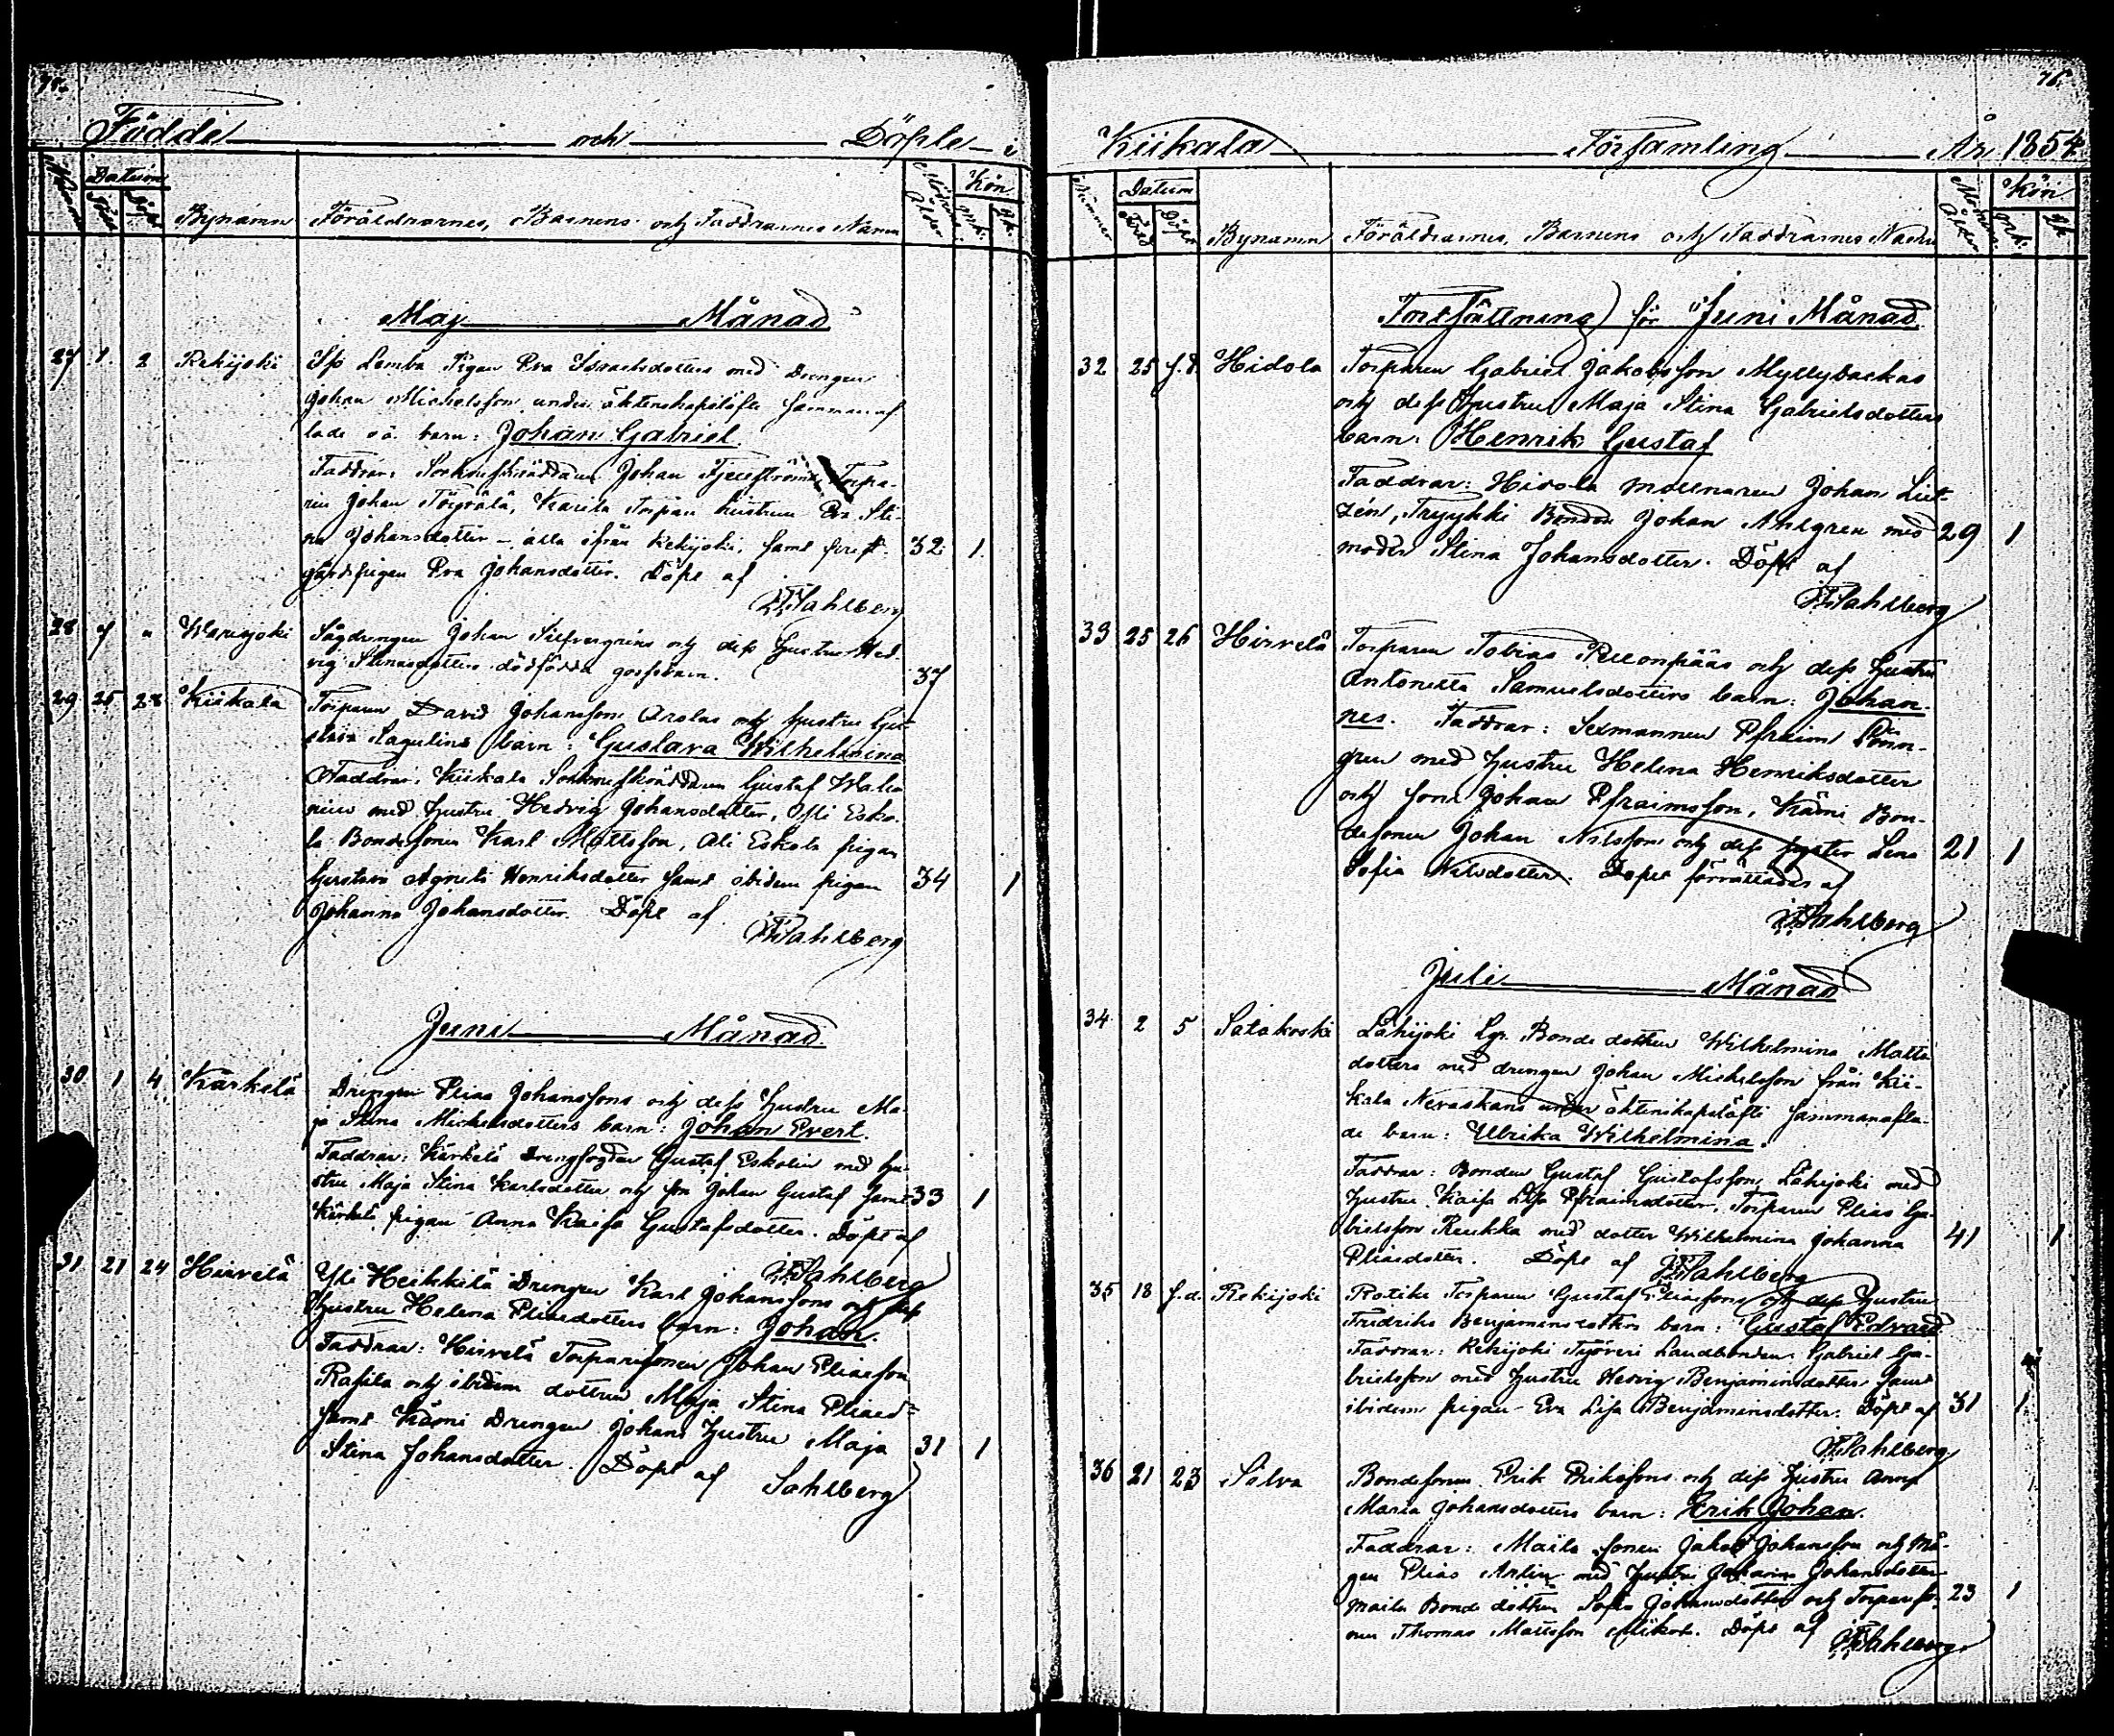 75.
Födde och Döpte i
Nummer Datum Född Döpt Bynamn Föräldrarnes, Barnens och Faddrarnes Namn Modrens Ålder Kön mk. qk.
Maj Månad
27 1. 2 Rekijoki Pigan Eva Israelsdotters med Drengen
Johan Michelsson under äktenskapslöfte samman af
lade oä. barn: Johan Gabriel.
Faddrar: Sockneskräddaren Johan Torpa-
ren Johan Torpari hustrun Eva Sti-
na Johansdotter – alla ifrån Rekijoki, samt prest- 32 1.
gårdspigan Eva Johansdotter. Döpt af
Sahlberg
28 " Warisjoki Sågdrengen Johan och dess Hustru Hed-
vig Stinasdotters dödfödda gossebarn. 37
29 25 28 Kiikala Torparen David Johansson och hustru Gus-
barn: Gustava Wilhelmina
Faddrar: Kiikala Sockneskräddaren Gustaf
med hustru Hedvig Johansdotter, Yli Esko-
la Bondesonen Karl Mattsson, Ali Eskola pigan
Gustava Agneta Henriksdotter samt ibidem pigan 34 1
Johanna Johansdotter. Döpt af
Sahlberg
Juni Månad
30 1 4 Kärkelä Drengen Elias Johanssons och dess hustru Ma-
ja Stina Michelsdotters barn: Johan Evert.
Faddrar: Kärkelä Drengfogden Gustaf Eskolin med hu-
stru Maja Stina Karlsdotter och son Johan Gustaf samt 33 1
Kärkelä pigan Anna Kaisa Gustafsdotter. Döpt af
Sahlberg
31 21 24 Hirvelä Yli Heikkilä Drengen Karl Johanssons och dess
hustru Helena Eliaedotters barn: Johan.
Faddrar: Hirvelä Torparesonen Johan Eliasson
och ibidem dottren Maja Stina Eliaed=
samt Kämi Drengen Johans hustru Maja 31 1
Stina Johansdotter. Döpt af Sahlberg
76.
Kiikala Församling År 1854
Nummer Datum Född Döpt Bynamn Föräldrarnes, Barnens och Faddrarnes Namn Modrens Ålder Kön mk. qk
Fortsättning för Juni Månad
32 25 s.d. Hidola Torparen Gabriel Jakobsson Myllybackas
och dess Hustru Maja Stina Gabrielsdotters
barn: Henrik Gustaf
Faddrar: Hidola mollnaren Johan
Johan Ahlgren med 29 1
moder Stina Johansdotter. Döpt af
Sahlberg
33 25 26 Hirvelä Torparen Tobias och dess hustru
Antonetta Samuelsdotters barn: Johan-
nes. Faddrar: Sexmannen Efraim Lönn-
gren med hustru Helena Henriksdotter
och son Johan Efraimsson, Kämi Bon-
desonen Johan Nilsson och dess syster Lena 21 1
Sofia Nilsdotter. Dopet förrättades af
Sahlberg
Juli Månad
34 2 5 Satakoski Lähijoki Bonde dottren Wilhelmina Matts
dotters med drengen Johan Michelsson från Kii-
kala under äktenskapslöfte sammanafla-
de barn: Ulrika Wilhelmina.
Faddrar: Bonden Gustaf Gustafsson Lähijoki med
hustru Kaisa Lisa Efraimsdotter, Torparen Elias Ga-
brielsson med dotter Wilhelmina Johanna 41 1
Eliaedotter. Döpt af Sahlberg
35 18 s.d. Rekijoki Torparen Gustaf Eliassons och dess hustru
Fredrika Benjaminsdotters barn: Gustaf Edvard
Faddrar: Rekijoki Landbonden Gabriel Ga-
brielsson med hustru Hedvig Benjaminsdotter samt
ibidem pigan Eva Lisa Benjaminsdotter. Döpt af 31 1
Sahlberg
36 21 23 Silva Bondesonen Erik Erikssons och dess hustru Anna
Maria Johansdotters barn: Erik Johan.
Faddrar: sonen Jakob Johansson och må-
gen Elias med hustru Johanna Johansdotter
Bonde dottren Sofia Johansdotter och Torpareso- 23 1
nen Thomas Mattsson Döpt af Sahlberg